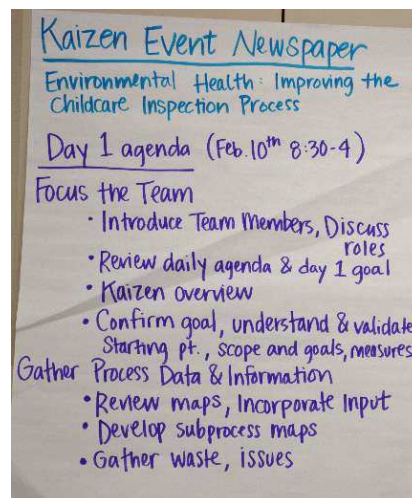 Kaizen Event Newspaper
Environmental Health: Improving the
Childcare Inspection Process
Day 1 agenda (Feb. 10th 8:30-4)
Focus the Team
• Introduce Team Members, Discuss
roles
• Review daily agenda & day 1 goal
• Kaizen overview
• Confirm goal, understand & validate
Starting pt., scope and goals, measures
Gather Process Data & Information
• Review maps, Incorporate Input
• Develop subprocess maps
• Gather waste, issues